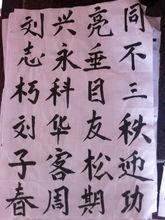 刘兴亮同
志永垂不
朽科目三
刘华友秩
子客松迎
春周期功